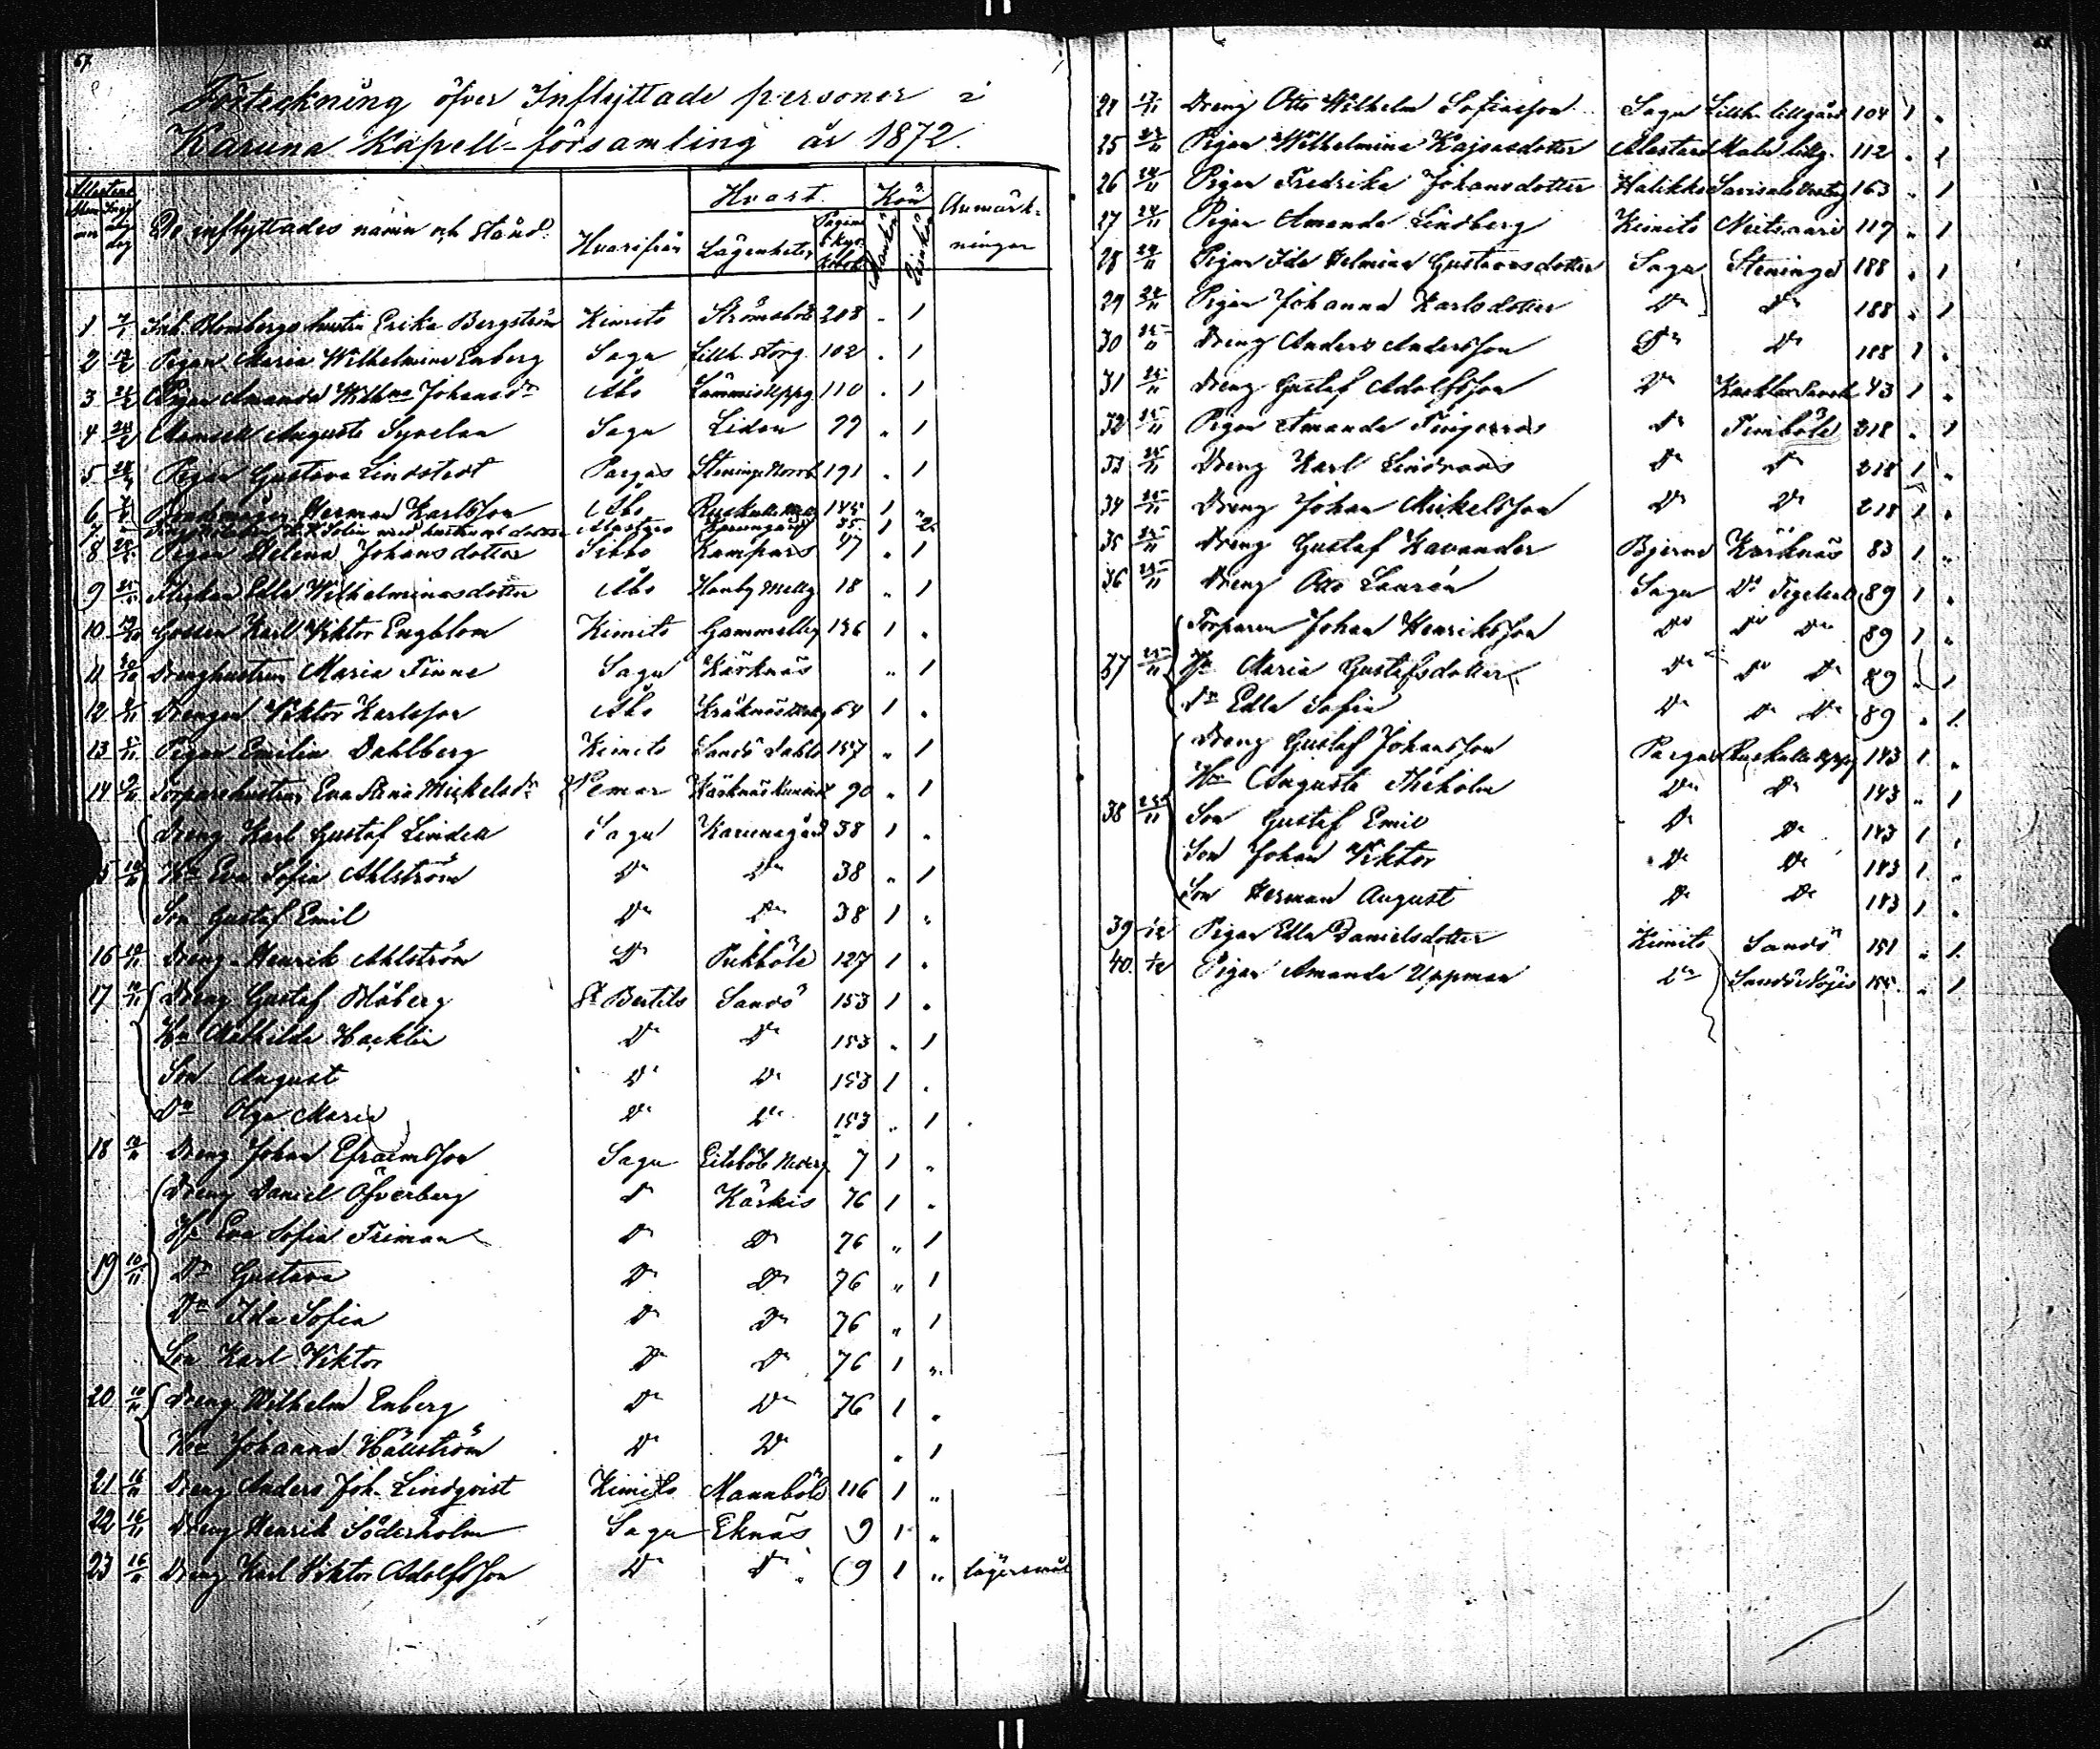 67.
Förteckning öfver Inflyttade personer i
Karuna Kapell-församling år 1872.
De inflyttades namn och stånd. Hvarifrån Hvart. Kön Anmärk-
Lägenheter Pagina i kyr. Mankön Qvinkön ningar
1 Inh. Blombergs hustru Erika Bergström Kimito Strömsböle 208 „ 1
2 Pigan Maria Wilhelmina Enberg Sagu Lillh. storg. 102 „ 1
3 Pigan Amanda Wilhna Johansdr Åbo Lammis Uppg 110 „ 1
4 Mamsell Augusta Syvelan Sagu Liden 99 „ 1
5 Pigan Gustava Lindstedt Pargas Steninge Norrb 191 „ 1
6 Herman Karlsson Åbo 145 1 „
7. Solin med hustru och dotter Karunagård 35. 1 2
8 Pigan Helena Johansdotter Sibbo Kampars 47 „ 1
9 Flickan Edla Wilhelminasdotter Åbo Hanby Mellg 18 „ 1
10 Gossen Karl Viktor Engblom Kimito Gammelby 136 1 „
11 Drenghustrun Maria Finne Sagu Kärknäs „ 1
12 Drengen Viktor Karlsson Åbo 64 1 „
13 Pigan Emilia Dahlberg Kimito Sandö Dahls 157 „ 1
14 Torparehustrun Eva Stina Mickelsdr Pemar Kärknäs 90 „ 1
Dreng Karl Gustaf Lindell Sagu Karunagård 38 1 „
15 Hu Eva Sofia Ahlström Do Do 38 „ 1
Son Gustaf Emil Do Do 38 1 „
16 Dreng Henrik Ahlström Do Pukböle 127 1 „
17 Dreng Gustaf Blåberg St Bertils Sandö 153 1 „
Hu Mathilda Hacklin Do Do 153 „ 1
Son August Do Do 153 1 „
Dr Olga Maria Do Do 153 „ 1
18 Dreng Johan Efraimsson Sagu Eitsböle Nederg 7 1 „
Dreng Daniel Öfverberg Do Kärkis 76 1 „
Hu Eva Sofia Friman Do Do 76 „ 1
19 10/11 Dr Gustava Do Do 76 „ 1
Dr Ida Sofia Do Do 76 „ 1
Son Karl Viktor Do Do 76 1 „
20 10/11 Dreng Wilhelm Enberg Do Do 76 1 „
Hu Johanna Hällström Do Do „ 1
21 16/11 Dreng Anders Joh. Lindqvist Kimito Mannböle 116 1 „
22 16/11 Dreng Henrik Söderholm Sagu Eknäs 9 1 „
23 16/11 Dreng Karl Viktor Adolfsson Do Do 9 1 „ lägersmål
68.
24 17/11 Dreng Otto Wilhelm Sofiasson Sagu Lillh. lillgård 104 1 „
25 Pigan Wilhelmina Kajsasdotter Alastaro Malm lillg. 112 „ 1
26 24/11 Pigan Fredrika Johansdotter Halikko 163 „ 1
27 24/11 Pigan Amanda Lindberg Kimito 117 „ 1
28 24/11 Pigan Ida Helmina Gustavsdotter Sagu Steninge 188 „ 1
29 24/11 Pigan Johanna Karlsdotter Do Do 188 „ 1
30 25/11 Dreng Anders Andersson Do Do 188 1 „
31 25/11 Dreng Gustaf Adolfsson Do 43 1 „
32 25/11 Pigan Amanda Fingerroos Do Fimböle 218 „ 1
33 25/11 Dreng Karl Lindroos Do Do 218 1 „
34 25/11 Dreng Johan Mickelsson Do Do 218 1 „
35 25/11 Dreng Gustaf Kavander Bjerno Kärknäs 83 1 „
36 25/11 Dreng Otto Laurén Sagu Do Tegelsal 89 1 „
Torparen Johan Henriksson Do Do Do 89 1 „
37 25/11 Hu Maria Gustafsdotter Do Do Do 89 „ 1
Dr Edla Sofia Do Do Do 89 „ 1
Dreng Gustaf Johansson Pargas Ruskulla Uppg 143 1 „
Hu Augusta Theholm Do Do 143 „ 1
38 25/11 Son Gustaf Emil Do Do 143 1 „
Son Johan Viktor Do Do 143 1 „
Son Herman August Do Do 143 1 „
39 Pigan Edla Danielsdotter Kimito Sandö 151 „ 1
40. Pigan Amanda Uppman Do Sandö Nöjis 155 „ 1